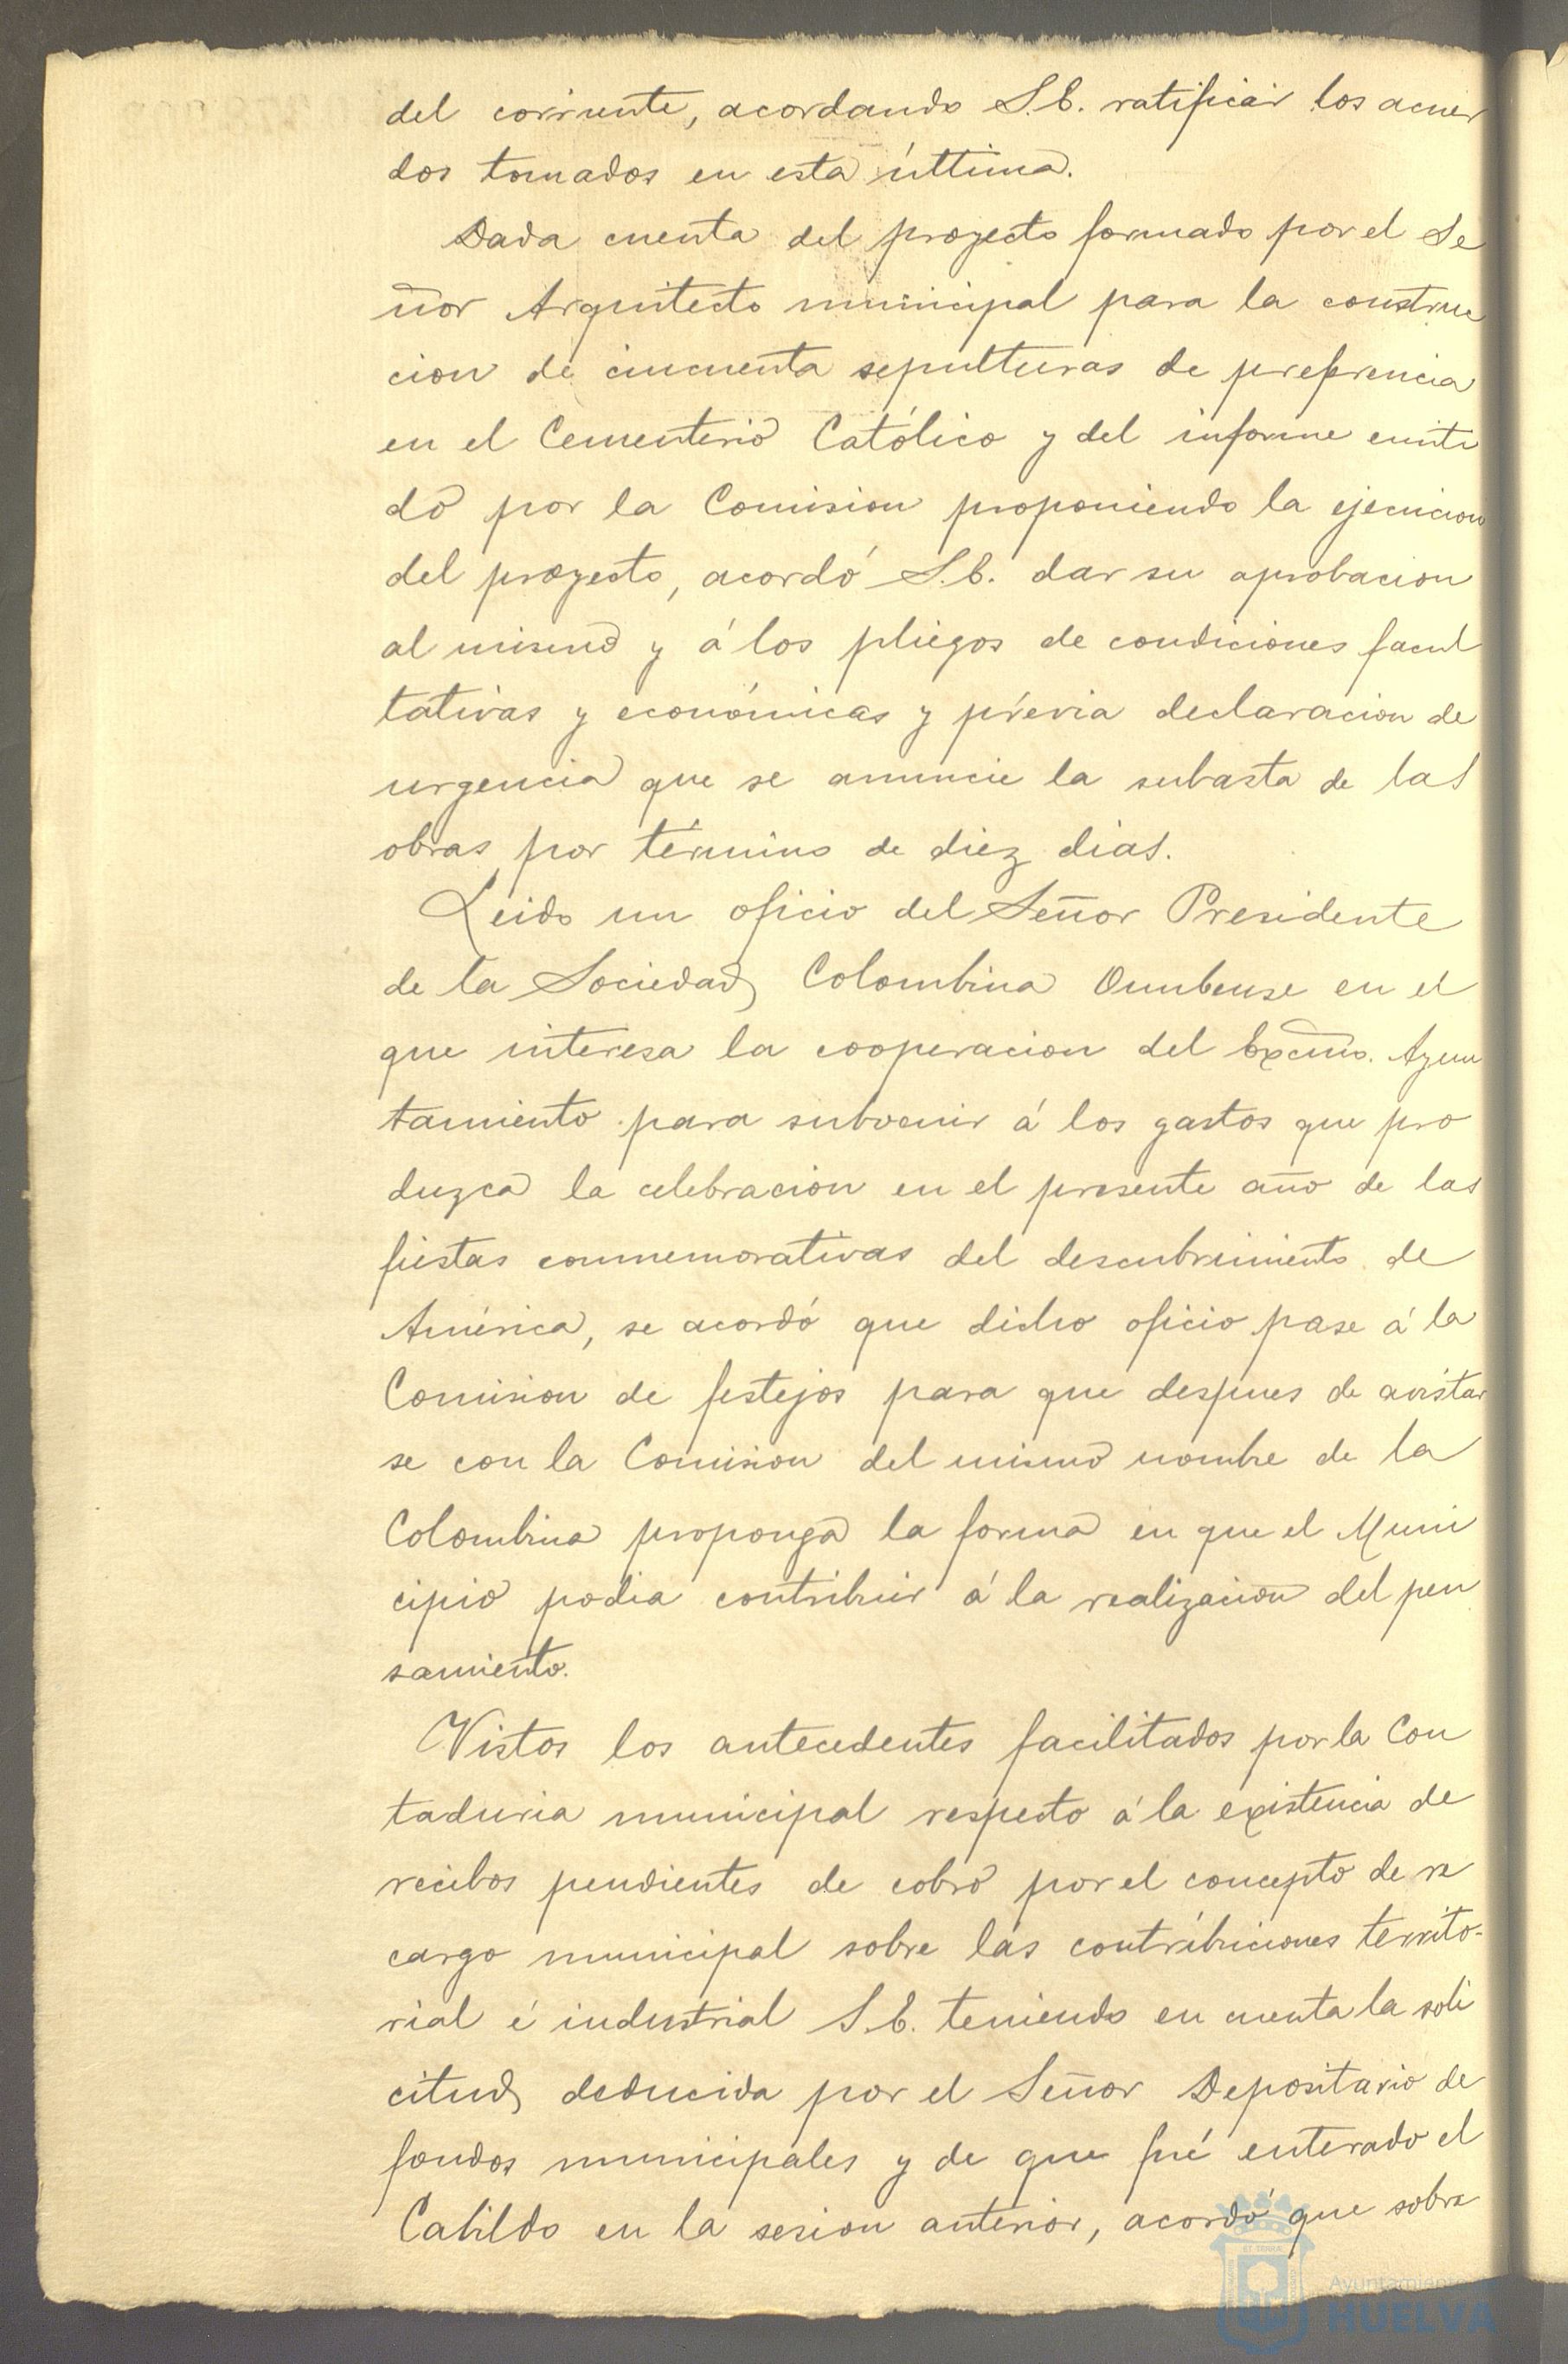 del corriente, acordando S.E. ratificar los acuer
dos tomados en esta última.
Dada cuenta del proyecto formado por el Se
ñor Arquitecto municipal para la construc
cion de cincuenta sepulturas de preferencia
en el Cementerio Católico y del informe emiti
do por la Comision proponiendo la ejecucion
del proyecto, acordó S.E. dar su aprobacion
al mismo y á los pliegos de condiciones facul
tativas y económicas y prévia declaracion de
urgencia que se anuncie la subasta de las
obras por término de diez dias.
Leido un oficio del Señor Presidente
de la Sociedad Colombina Onubense en el
que interesa la cooperacion del Excmo. Ayun
tamiento para subvenir á los gastos que pro
duzca la celebracion en el presente año de las
fiestas conmemorativas del descubrimiento de
América, se acordó que dicho oficio pase á la
Comision de festejos para que despues de avistar
se con la Comision del mismo nombre de la
Colombina proponga la forma en que el Muni
cipio podia contribuir á la realizacion del pen
samiento.
Vistos los antecedentes facilitados por la Con
taduria municipal respecto á la existencia de
recibos pendientes de cobro por el concepto de re
cargo municipal sobre las contribuciones territo-
rial é industrial S.E. teniendo en cuenta la soli
citud deducida por el Señor Depositario de
fondos municipales y de que fué enterado el
Cabildo en la sesion anterior, acordó que sobre
Ayuntamiento
HUELVA